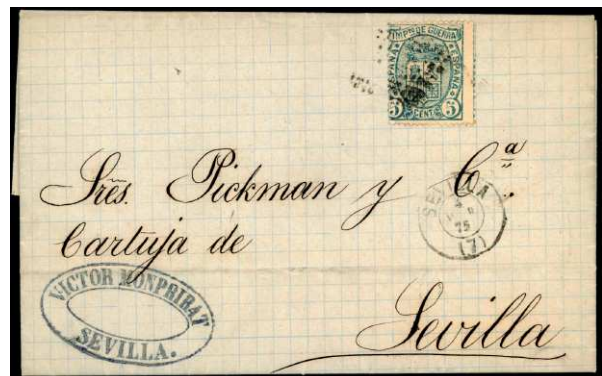 IMPto DE GUERRA
ESPAÑA ESPAÑA
5 CENTS 5
Sres. Pickman y Cª
Cartuja de
SEVILLA
75
(7)
VICTOR MONPRIBAT
SEVILLA.
Sevilla